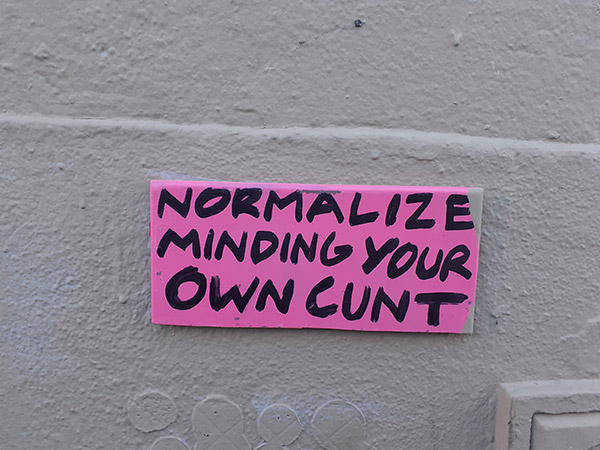 NORMALIZE
MINDING YOUR
OWN CUNT